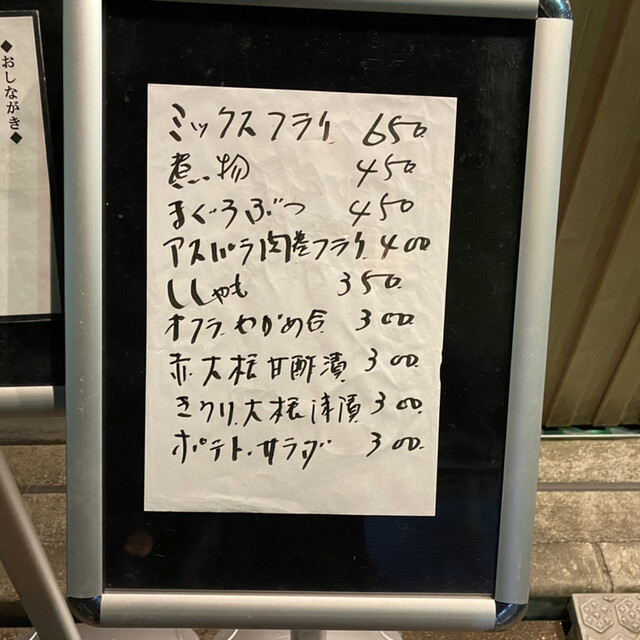 ◆おしながき◆
ミックスフライ 650
煮物 450
まぐろぶつ 450
アスパラ肉巻フライ 400
ししゃも 350
オクラ.わかめ合 300
赤.大根甘酢漬 300
きウリ.大根漬 300
ポテト.サラダ 300